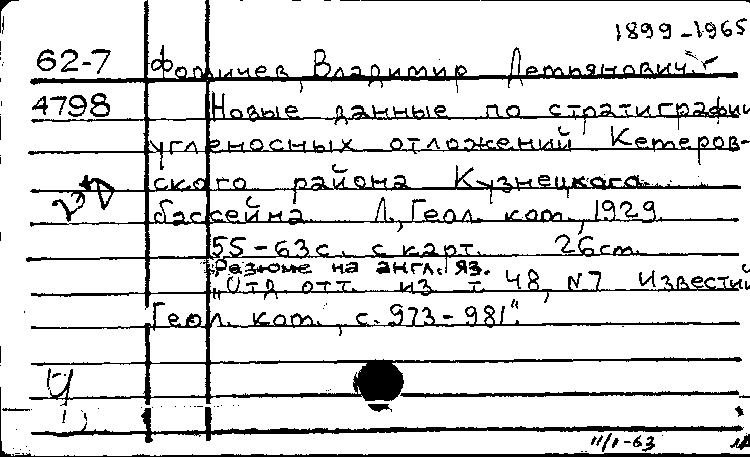 1899-1965
62-7 Фомичев, Владимир Демьянович.
4798 Новые данные по стратиграфии
угленосных отложений Кемеров-
ского района Кузнецкого
бассейна Л., Геол. ком., 1929.
55-63 с. с карт. 26 см.
Резюме на англ. яз.
"Отд. отт. из т. 48, №7 Известий
Геол. ком., с. 973-981".
11/I-63